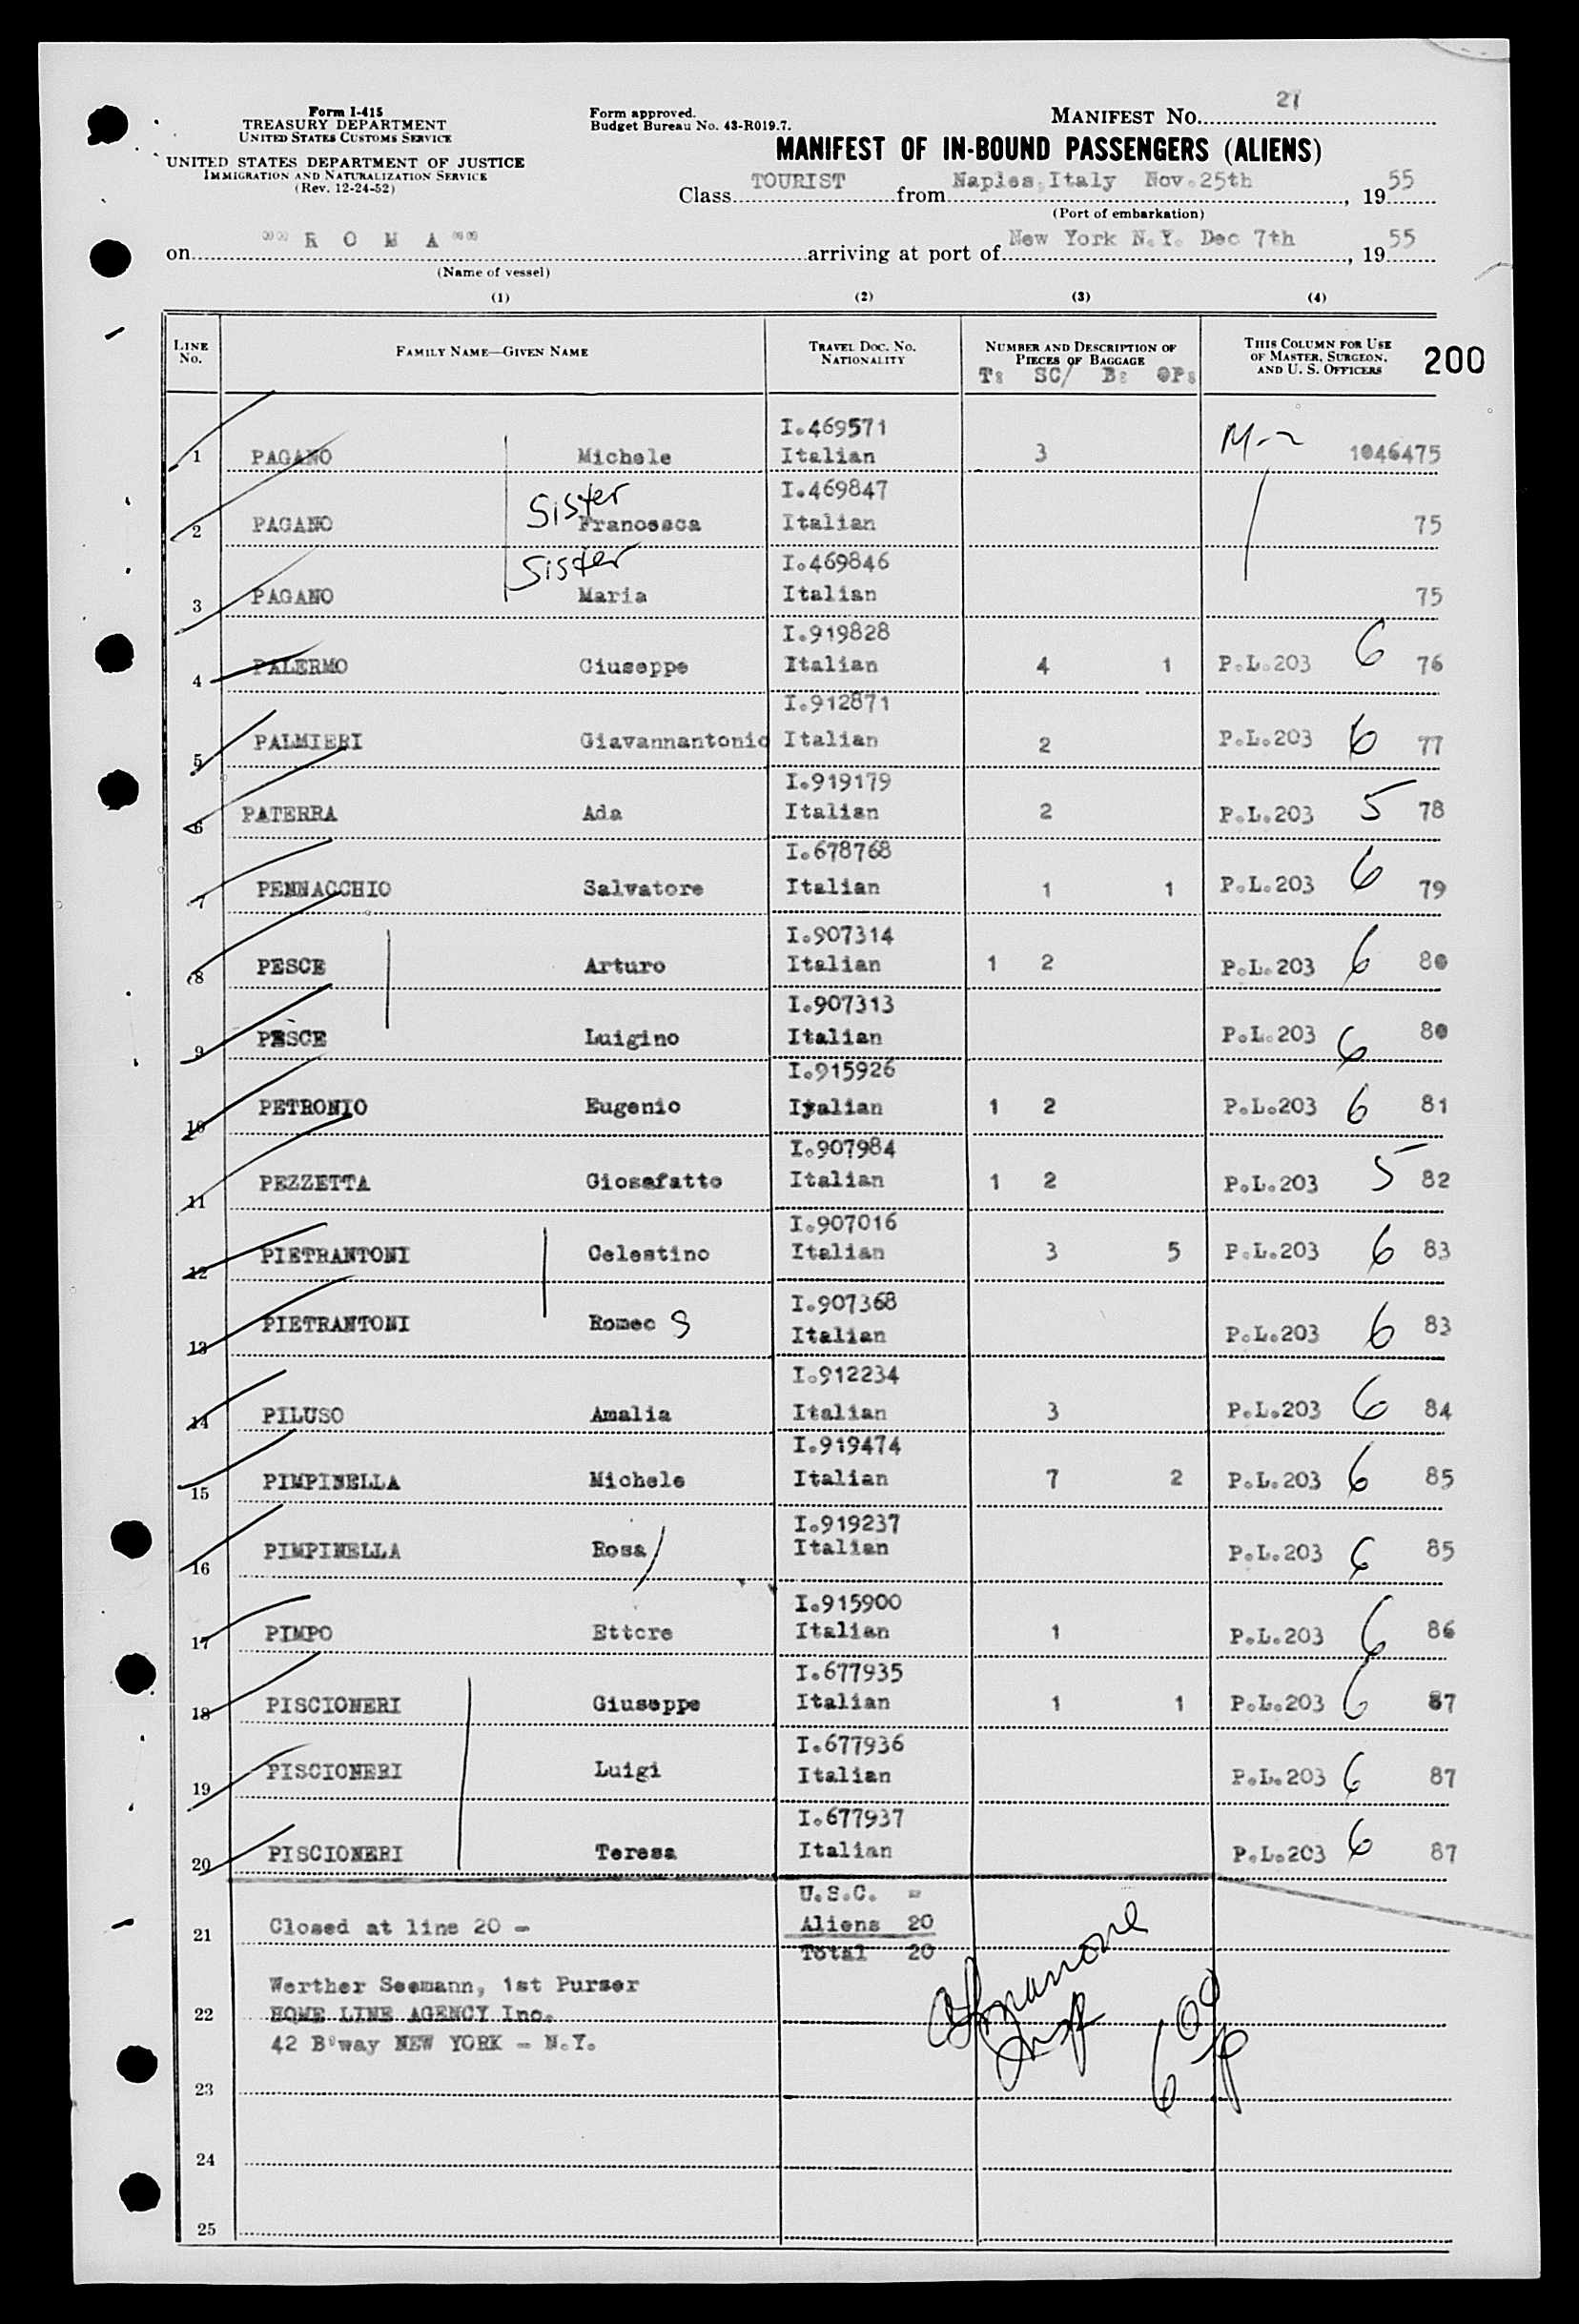 Form I-415
TREASURY DEPARTMENT
UNITED STATES CUSTOMS SERVICE
UNITED STATES DEPARTMENT OF JUSTICE
IMMIGRATION AND NATURALIZATION SERVICE
(Rev. 12-24-52)
Form approved.
Budget Bureau No. 43-R019.7.
MANIFEST No. 21
MANIFEST OF IN-BOUND PASSENGERS (ALIENS)
Class TOURIST from Naples,Italy Nov.25th, 1955
(Port of embarkation)
on "" R O M A "" arriving at port of New York N.Y. Dec 7th, 1955
(Name of vessel)
(1) (2) (3) (4)
LINE No. FAMILY NAME—GIVEN NAME TRAVEL DOC. NO. NATIONALITY NUMBER AND DESCRIPTION OF PIECES OF BAGGAGE THIS COLUMN FOR USE OF MASTER, SURGEON, AND U. S. OFFICERS 200
T: SC/ B: OPs
I.469571
1 PAGANO Michele Italian 3 M-2 1046475
Sister I.469847
2 PAGANO Francesca Italian 75
Sister I.469846
3 PAGANO Maria Italian 75
I.919828
4 PALERMO Giuseppe Italian 4 1 P.L.203 6 76
I.912871
5 PALMIERI Giavannantonio Italian 2 P.L.203 6 77
I.919179
6 PATERRA Ada Italian 2 P.L.203 5 78
I.678768
7 PENNACCHIO Salvatore Italian 1 1 P.L.203 6 79
I.907314
8 PESCE Arturo Italian 1 2 P.L.203 6 80
I.907313
9 PESCE Luigino Italian P.L.203 6 80
I.915926
10 PETRONIO Eugenio Iyalian 1 2 P.L.203 6 81
I.907984
11 PEZZETTA Giosafatto Italian 1 2 P.L.203 5 82
I.907016
12 PIETRANTONI Celestino Italian 3 5 P.L.203 6 83
I.907368
13 PIETRANTONI Romeo S Italian P.L.203 6 83
I.912234
14 PILUSO Amalia Italian 3 P.L.203 6 84
I.919474
15 PIMPINELLA Michele Italian 7 2 P.L.203 6 85
I.919237
16 PIMPINELLA Rosa Italian P.L.203 6 85
I.915900
17 PIMPO Ettore Italian 1 P.L.203 6 86
I.677935
18 PISCIONERI Giuseppe Italian 1 1 P.L.203 6 87
I.677936
19 PISCIONERI Luigi Italian P.L.203 6 87
I.677937
20 PISCIONERI Teresa Italian P.L.203 6 87
U.S.C. -
21 Closed at line 20 - Aliens 20
Total 20
Werther Seemann, 1st Purser
22 HOME LINE AGENCY Inc.
42 B'way NEW YORK - N.Y.
23
24
25